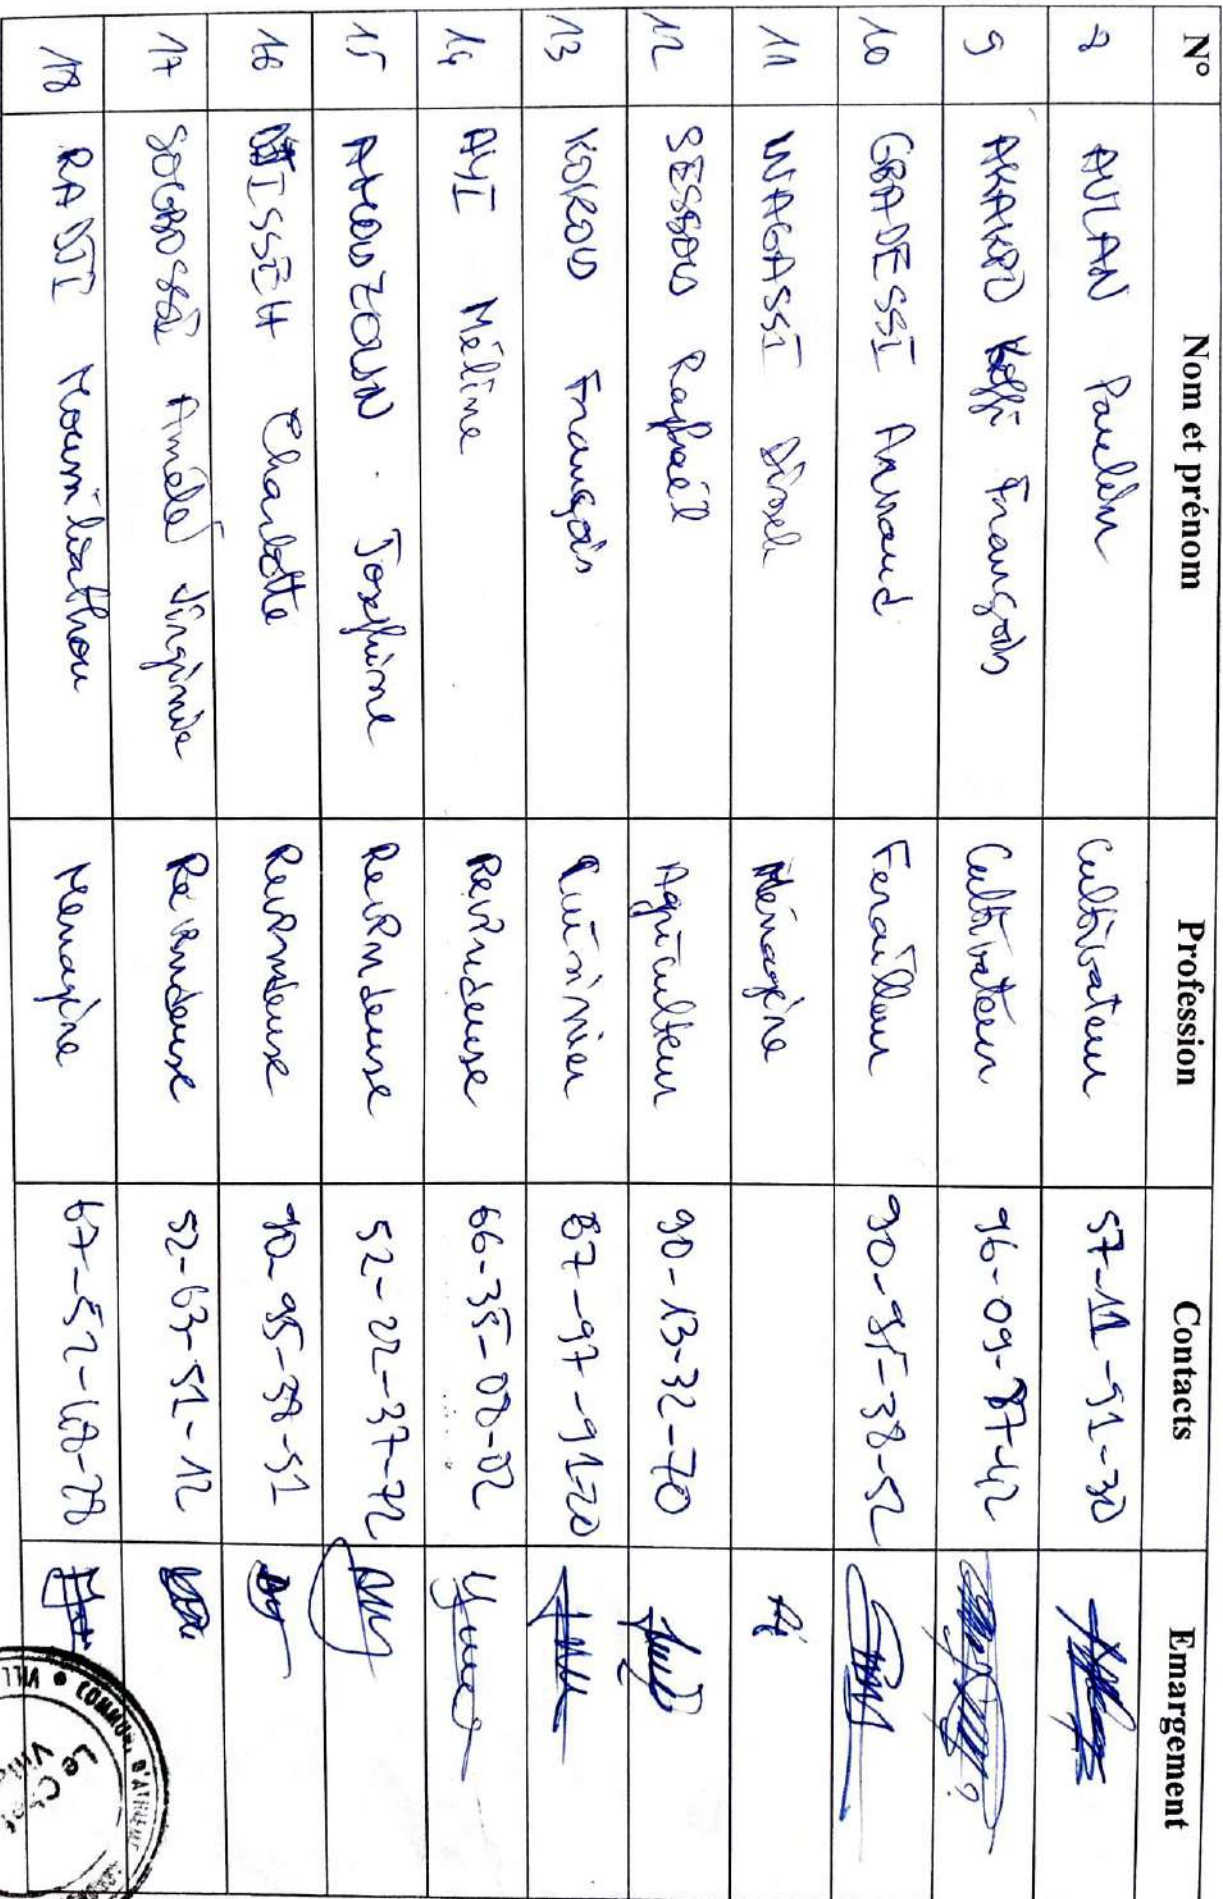 N° Nom et prénom Profession Contacts Emargement
8 AVLAN Paulin Cultivateur 57-11-51-30
9 AKAKPO Koffi François Cultivateur 96-09-87-42
10 GBADESSI Arnaud Ferailleur 90-95-38-52
11 WAGASSI Ménagère
12 SESSOU Raphaël Agriculteur 90-13-32-70
13 KOKOU François Cuisinier 67-97-91-20
14 AYI Méline Revendeuse 66-35-08-02
15 AHOUZOUN Joséphine Revendeuse 52-22-37-72
16 DJISSEH Charlotte Revendeuse 90-95-38-51
17 SOGBOSSI Amélé Virginie Revendeuse 52-63-51-12
18 RADJI Mènagère 67-52-48-28
COMMUNE D'ATHIEME
Le Chef